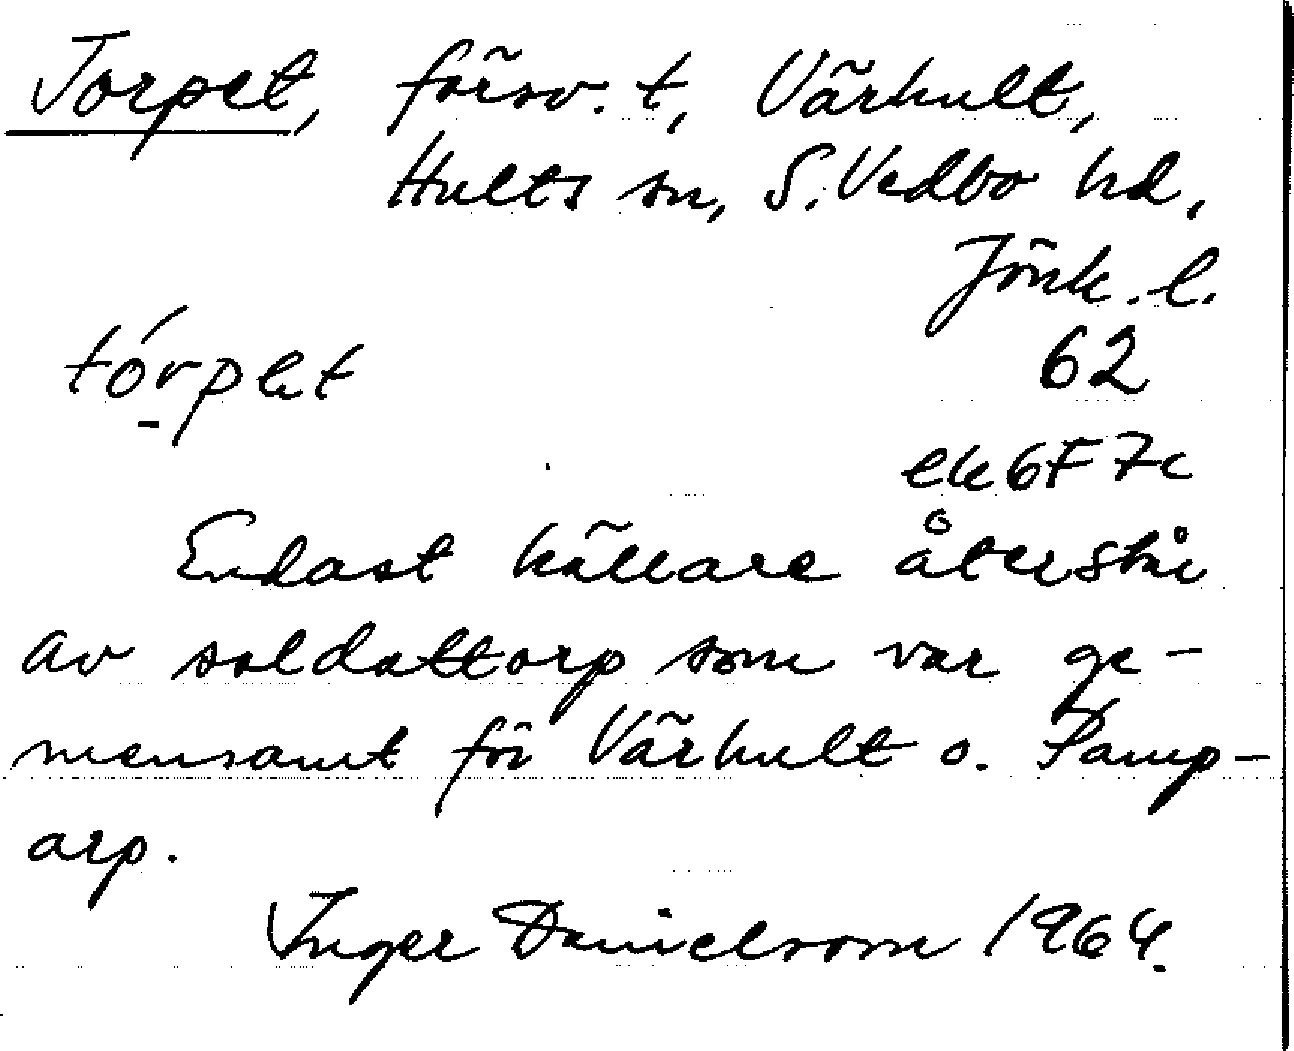 Torpet, försv. t, Värhult,
Hults sn, S. Vedbo hd,
Jönk. l.
tórpet
62
ek 6F7c
Endast källare återstår
av soldattorp som var ge-
mensamt för Värhult o. Pamp-
arp.
Inger Danielsson 1964.